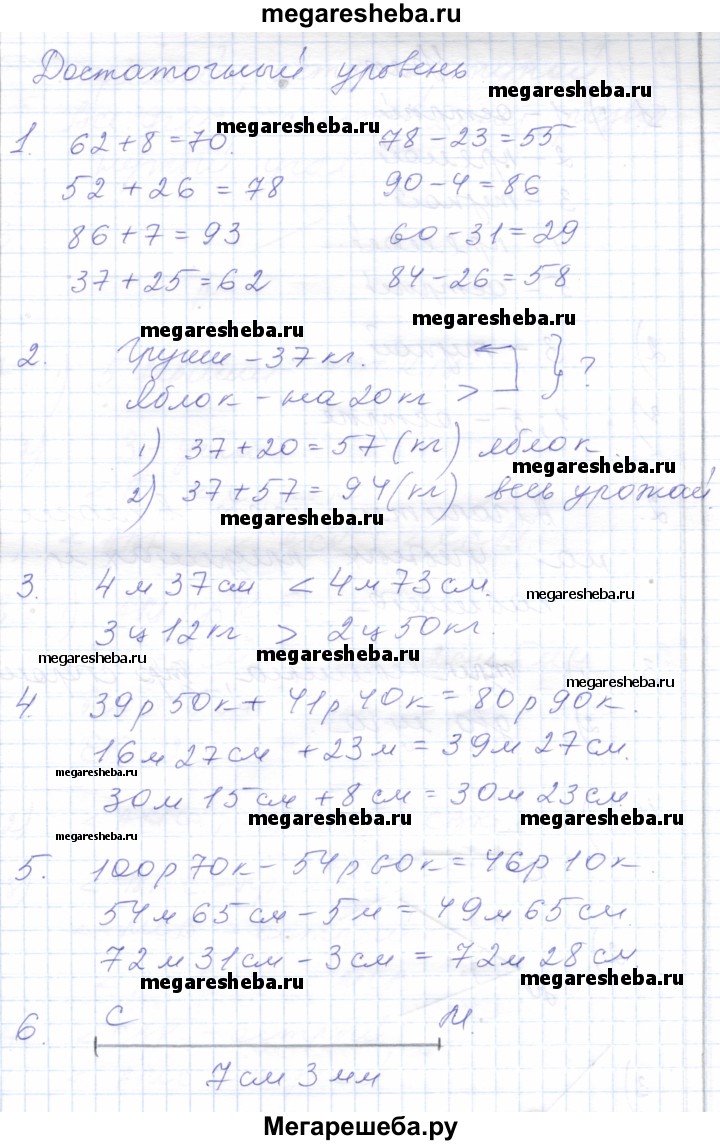 megaresheba.ru
Достаточный уровень
megaresheba.ru
1. 62+8=70. megaresheba.ru 78-23=55
52+26=78 90-4=86
86+7=93 60-31=29
37+25=62 84-26=58
megaresheba.ru megaresheba.ru
2. Груши-37кг.
Яблок-на 20кг > } ?
1) 37+20=57(кг) яблок
megaresheba.ru
2) 37+57=94(кг) весь урожай.
megaresheba.ru
3. 4м 37см < 4м 73см.
megaresheba.ru
3ц 12кг > 2ц 50кг.
megaresheba.ru megaresheba.ru
megaresheba.ru
4. 39р 50к + 41р 40к = 80р 90к.
16м 27см + 23м = 39м 27см.
megaresheba.ru
30м 15см + 8см = 30м 23см
megaresheba.ru megaresheba.ru
megaresheba.ru
5. 100р 70к - 54р 60к = 46р 10к.
54м 65см - 5м = 49м 65см.
72м 31см - 3см = 72м 28см
megaresheba.ru megaresheba.ru
6. С М.
7см 3мм
Мегарешеба.ру